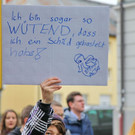 Ich bin sogar so
WÜTEND, dass
ich ein Schild gebastelt
habe!